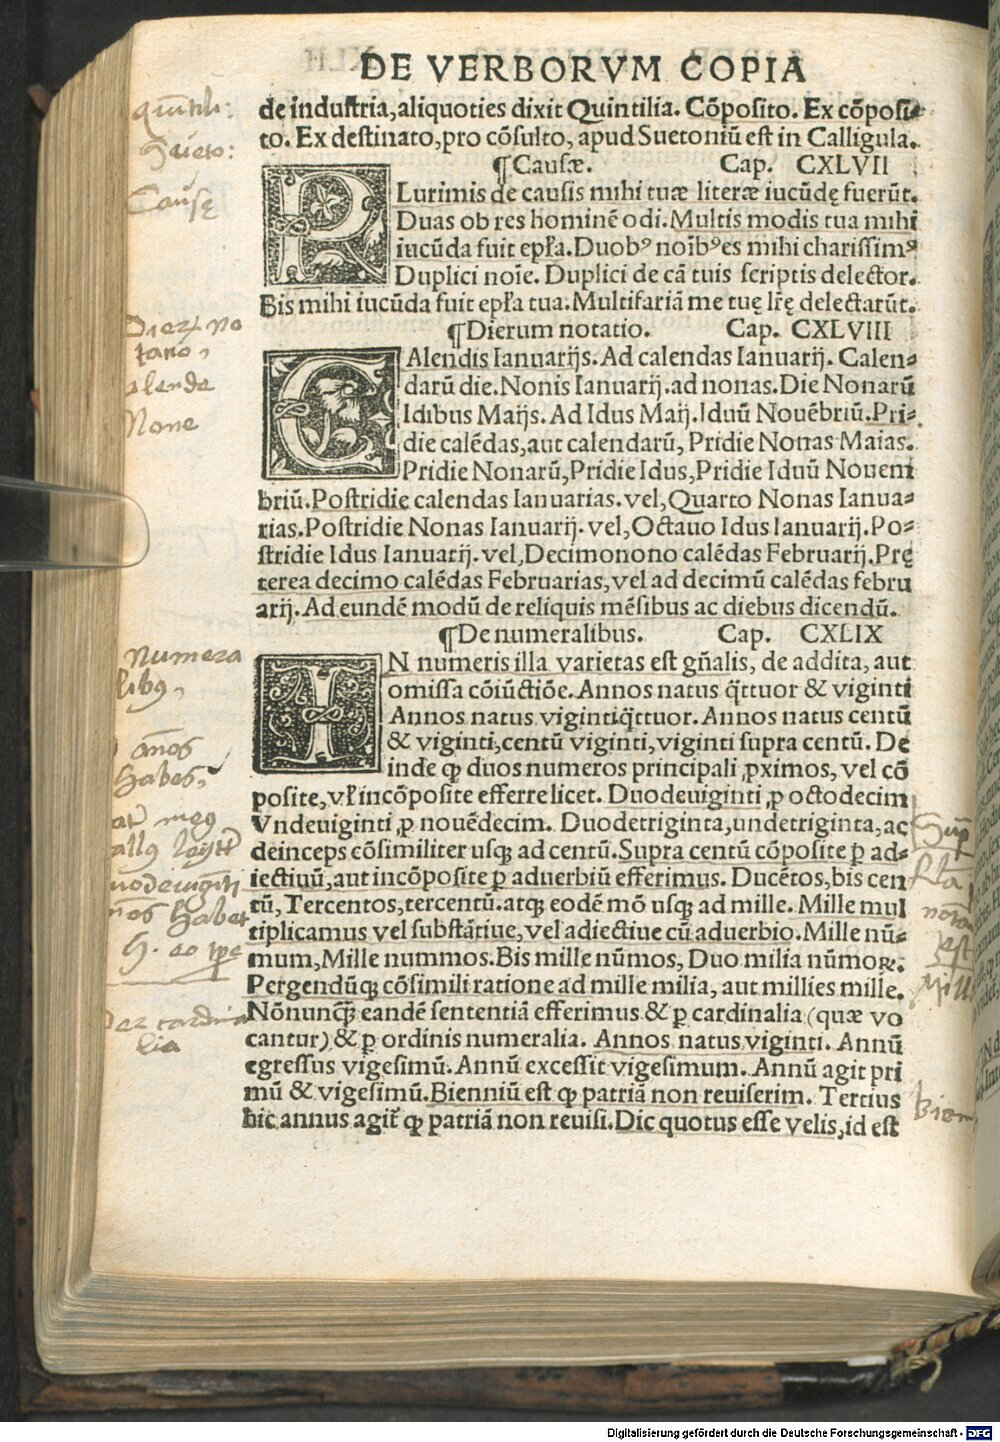 DE VERBORVM COPIA
de industria,aliquoties dixit Quintilia. Cōposito. Ex cōposi⸗
to. Ex destinato,pro cōsulto, apud Suetoniū est in Calligula.
¶Causæ. Cap. CXLVII
PLurimis de causis mihi tuæ literæ iucūdę fuerūt.
Duas ob res hominē odi. Multis modis tua mihi
iucūda fuit epła. Duobꝰ noībꝰes mihi charissimꝰ
Duplici noīe. Duplici de cā tuis scriptis delector.
Bis mihi iucūda fuit epła tua. Multifariā me tuę lr̄ę delectarūt.
¶Dierum notatio. Cap. CXLVIII
CAlendis Ianuarijs. Ad calendas Ianuarij. Calen⸗
darū die. Nonis Ianuarij. ad nonas. Die Nonarū
Idibus Maijs. Ad Idus Maij. Iduū Nouēbriū. Pri⸗
die calēdas, aut calendarū, Pridie Nonas Maias.
Pridie Nonarū, Pridie Idus, Pridie Iduū Nouem
briū. Postridie calendas Ianuarias. vel, Quarto Nonas Ianua⸗
rias. Postridie Nonas Ianuarij. vel, Octauo Idus Ianuarij. Po⸗
stridie Idus Ianuarij. vel, Decimonono calēdas Februarij. Prę
terea decimo calēdas Februarias, vel ad decimū calēdas febru
arij. Ad eundē modū de reliquis mēsibus ac diebus dicendū.
¶De numeralibus. Cap. CXLIX
IN numeris illa varietas est gn̄alis, de addita, aut
omissa cōiūctiōe. Annos natus q̄ttuor & viginti
Annos natus vigintiq̄ttuor. Annos natus centū
& viginti, centū viginti, viginti supra centū. De
inde ꝙ duos numeros principali ꝓximos, vel cō
posite, vł incōposite efferre licet. Duodeuiginti ꝓ octodecim
Vndeuiginti ꝓ nouēdecim. Duodetriginta, undetriginta, ac
deinceps cōsimiliter usqꝫ ad centū. Supra centū cōposite ꝑ ad⸗
iectiuū, aut incōposite ꝑ aduerbiū efferimus. Ducētos, bis cen
tū, Tercentos, tercentū. atqꝫ eodē mō usqꝫ ad mille. Mille mul
tiplicamus vel substātiue, vel adiectiue cū aduerbio. Mille nū⸗
mum, Mille nummos. Bis mille nūmos, Duo milia nūmoꝝ.
Pergendūqꝫ cōsimili ratione ad mille milia, aut millies mille.
Nōnunqꝫ̄ eandē sententiā efferimus & ꝑ cardinalia (quæ vo
cantur) & ꝑ ordinis numeralia. Annos natus viginti. Annū
egressus vigesimū. Annū excessit vigesimum. Annū agit pri
mū & vigesimū. Bienniū est ꝙ patriā non reuiserim. Tertius
hic annus agit̄ ꝙ patriā non reuisi. Dic quotus esse velis, id est
quintili:
Sueto:
Causę
tatio
alende
None
numera
libus
anos
habes
Digitalisierung gefördert durch die Deutsche Forschungsgemeinschaft - DFG